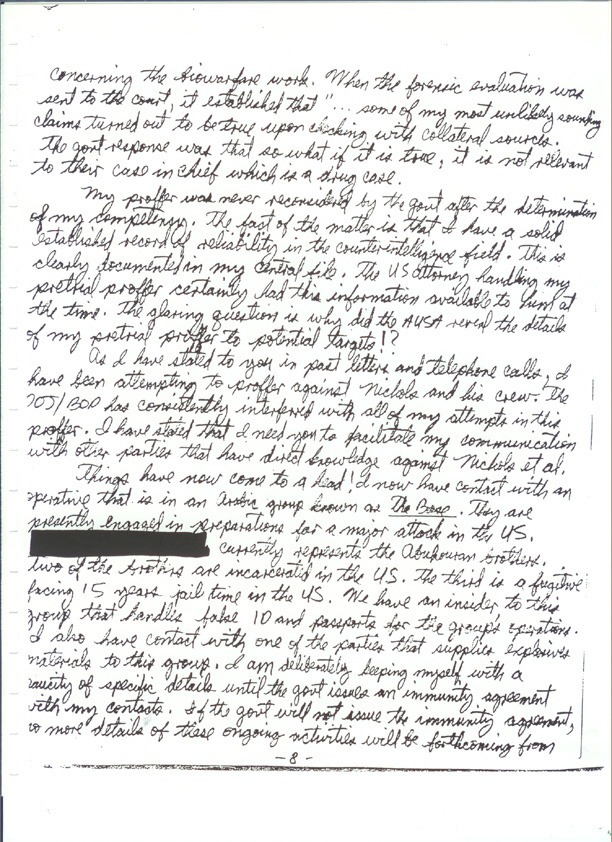 concerning the biowarfare work. When the forensic evaluation was
sent to the court, it established that "... some of my most unlikely sounding
claims turned out to be true upon checking with collateral sources.
The govt response was that so what if it is true, it is not relevant
to their case in chief which is a drug case.
My proffer was never reconsidered by the govt after the determination
of my competency. The fact of the matter is that I have a solid
established record of reliability in the counterintelligence field. This is
clearly documented in my central file. The US Attorney handling my
pretrial proffer certainly had this information available to him at
the time. The glaring question is why did the AUSA reveal the details
of my pretrial proffer to potential targets!?
As I have stated to you in past letters and telephone calls, I
have been attempting to proffer against Nichols and his crew. The
DOJ/BOP has consistently interfered with all of my attempts in this
proffer. I have stated that I need you to facilitate my communication
with other parties that have direct knowledge against Nichols et al.
Things have now come to a head! I now have contact with an
operative that is in an Arabic group known as The Base. They are
presently engaged in preparations for a major attack in the US.
currently represents the Abukouran brothers.
Two of the brothers are incarcerated in the US. The third is a fugitive
facing 15 years jail time in the US. We have an insider to this
group that handles false ID and passports for the group's operations.
I also have contact with one of the parties that supplies explosives
materials to this group. I am deliberately keeping myself with a
paucity of specific details until the govt issues an immunity agreement
with my contacts. If the govt will not issue the immunity agreement,
no more details of these ongoing activities will be forthcoming from
- 8 -